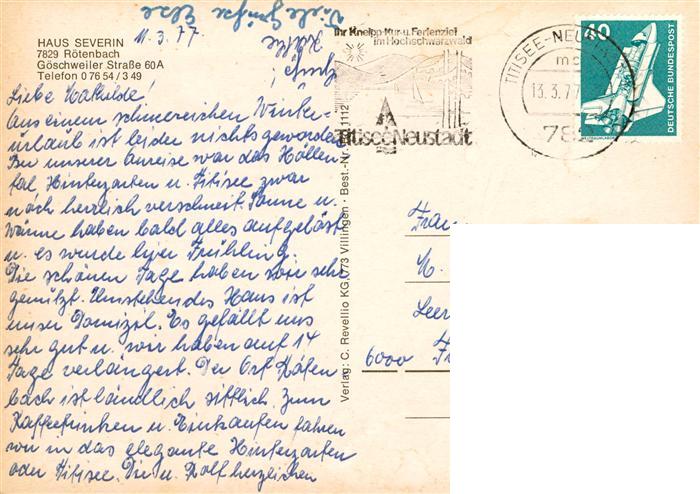 HAUS SEVERIN
7829 Rötenbach
Göschweiler Straße 60A
Telefon 0 76 54 / 3 49
11.3.77
Liebe Mathilde!
Aus einem schneereichen Winter-
urlaub ist leider nichts geworden.
Bei unserer Anreise war das Höllen
tal, Hinterzarten u. Titisee zwar
noch herrlich verschneit. Sonne u.
Wärme haben bald alles aufgelöst
u. es wurde hier Frühling.
Die schönen Tage haben wir sehr
genützt. Umstehendes Haus ist
unser Domizil. Es gefällt uns
sehr gut u. wir haben auf 14
Tage verlängert. Der Ort Röten
bach ist ländlich sittlich. Zum
Kaffeetrinken u. Einkaufen fahren
wir in das elegante Hinterzarten
oder Titisee. Die u. Rolf herzlichen
Viele Grüße Else
Verlag: C. Revellio KG, 773 Villingen · Best.-Nr. 1112
Ihr Kneipp-Kur-u. Ferienziel
im Hochschwarzwald
Titisee-Neustadt
TITISEE-NEU
13.3.77
782
40
DEUTSCHE BUNDESPOST
Frau
M.
Leer
6000 F